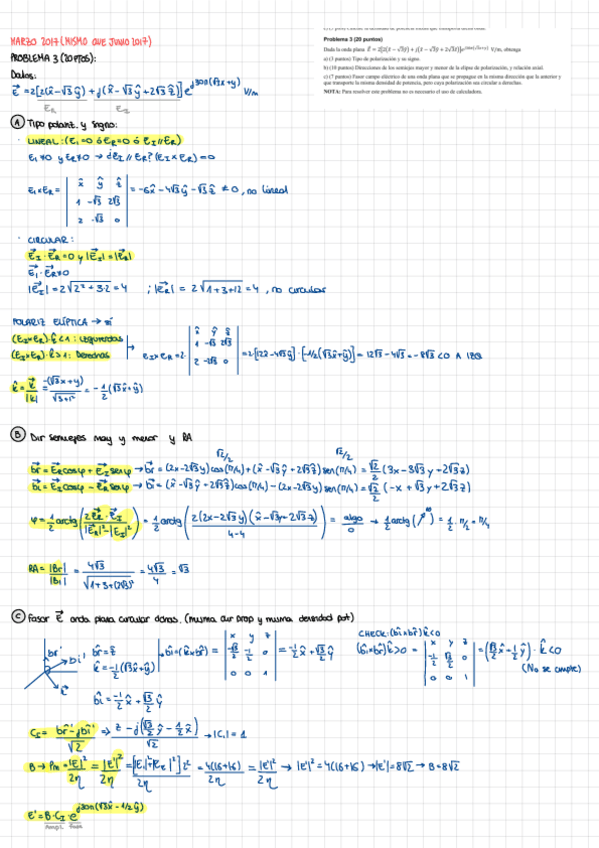 MARZO 2017 (MISMO QUE JUNIO 2017)
PROBLEMA 3 (20 PTOS):
Problema 3 (20 puntos)
Dada la onda plana
V/m, obtenga
a) (3 puntos) Tipo de polarización y su signo.
b) (10 puntos) Direcciones de los semiejes mayor y menor de la elipse de polarización, y relación axial.
c) (7 puntos) Fasor campo eléctrico de una onda plana que se propague en la misma dirección que la anterior y
que transporte la misma densidad de potencia, pero cuya polarización sea circular a derechas.
NOTA: Para resolver este problema no es necesario el uso de calculadora.
Datos:
V/m
A Tipo polariz. y signo:
· LINEAL: (E_I=0 ó E_R=0 ó E_I//E_R)
E_I≠0 y E_R≠0 → ¿E_I//E_R? (E_I×E_R)=0
E_I×E_R = | x̂ ŷ ẑ | = -6x̂-4√3ŷ-√3ẑ ≠0, no lineal
1 -√3 2√3
2 -√3 0
· CIRCULAR:
E_I·E_R=0 y |E_I|=|E_R|
E_I·E_R≠0
|E_I|=2√(2²+3·2)=4 ; |E_R|=2√(1+3+12)=4, no circular
POLARIZ ELÍPTICA → sí
(E_I×E_R)·k̂<1: izquierdas
(E_I×E_R)·k̂>1: Derechas
E_I×E_R=2· | x̂ ŷ ẑ | =2·[12x̂-4√3ŷ]·[-1/2(√3x̂+ŷ)]=12√3-4√3=-8√3<0 A IZQ
1 -√3 2√3
2 -2√3 0
k̂=k/|k|=-(√3x+y)/√(3+1²)=-1/2(√3x̂+ŷ)
B Dir semiejes may y menor y RA
√2/2 √2/2
br=E_R cosφ+E_I senφ → br=(2x-2√3y)cos(π/4)+(x̂-√3ŷ+2√3ẑ)sen(π/4)=√2/2(3x-3√3y+2√3z)
bi=E_I cosφ-E_R senφ → bi=(x̂-√3ŷ+2√3ẑ)cos(π/4)-(2x-2√3y)sen(π/4)=√2/2(-x+√3y+2√3z)
φ=1/2 arctg(2E_R·E_I/(|E_R|²-|E_I|²))=1/2 arctg(2(2x-2√3y)(x̂-√3y-2√3z)/(4-4))=algo/0 → 1/2 arctg(∞)=1/2·π/2=π/4
RA=|br|/|bi|=4√3/√(1+3+(2√3)²)=4√3/4=√3
C Fasor E onda plana circular dchas. (misma dir prop y misma densidad pot)
br'
bi'
k
br=ẑ
k̂=-1/2(√3x+ŷ)
bi=(k×br)= | x y z | =-1/2x̂+√3/2ŷ
-√3/2 -1/2 0
0 0 1
bi=-1/2x̂+√3/2ŷ
CHECK: (bi×br)k<0
(bi×br)k>0= | x y z | =(√3/2x̂-1/2ŷ)·k̂<0
-1/2 √3/2 0
0 0 1
(No se cumple)
C_I=(br-jbi')/√2 ⇒ (z-j(√3/2ŷ-1/2x̂))/√2 → |C_I|=1
B → Pm=|E|²/2η=|E'|²/2η=[|E_I|²+|E_R|²]2²/2η=4(16+16)/2η=|E'|²/2η → |E'|²=4(16+16) → |E'|=8√2 → B=8√2
E'=B·C_I·e^{j30π(√3x̂-1/2ŷ)}